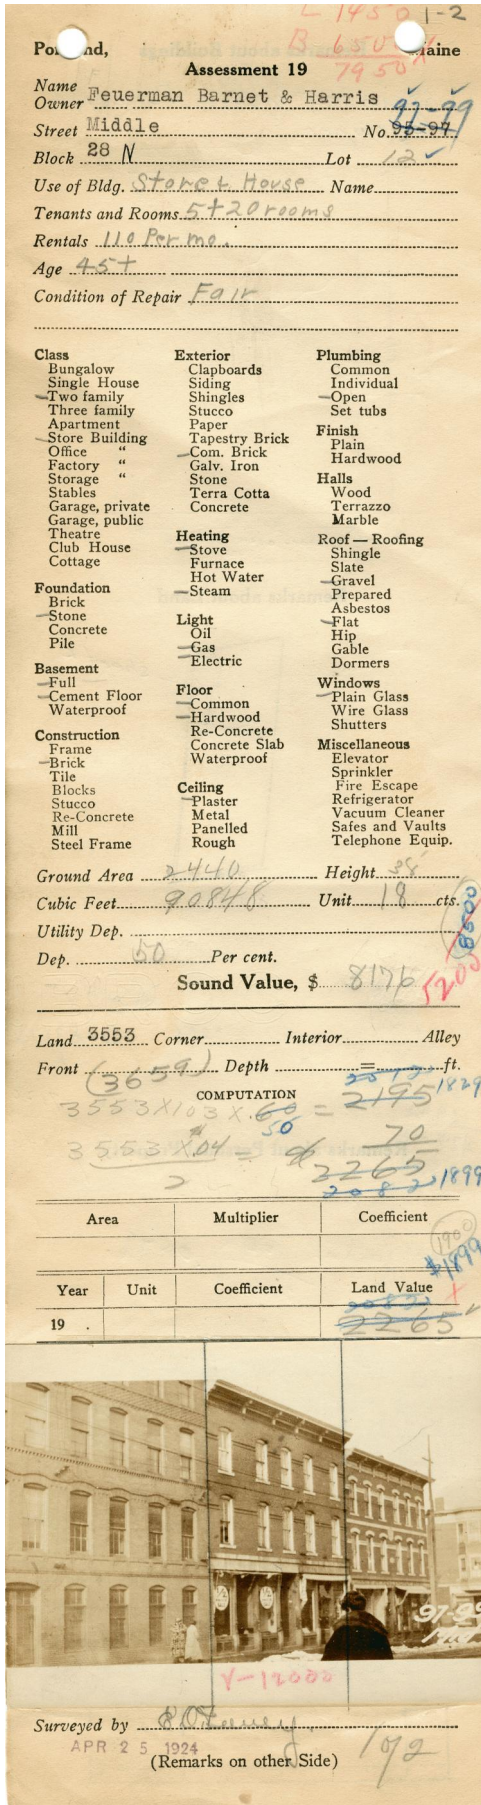 L 1450 1-2
B 6500
7950
Portland, Maine
Assessment 19
Name
Owner Feuerman Barnet & Harris
97-99
Street Middle No. 95-97
Block 28 N Lot 12
Use of Bldg. Store & House Name
Tenants and Rooms 5+20 rooms
Rentals 110 Per mo.
Age 45+
Condition of Repair Fair
Class
Bungalow
Single House
Two family
Three family
Apartment
Store Building
Office "
Factory "
Storage "
Stables
Garage, private
Garage, public
Theatre
Club House
Cottage
Foundation
Brick
Stone
Concrete
Pile
Basement
Full
Cement Floor
Waterproof
Construction
Frame
Brick
Tile
Blocks
Stucco
Re-Concrete
Mill
Steel Frame
Exterior
Clapboards
Siding
Shingles
Stucco
Paper
Tapestry Brick
Com. Brick
Galv. Iron
Stone
Terra Cotta
Concrete
Heating
Stove
Furnace
Hot Water
Steam
Light
Oil
Gas
Electric
Floor
Common
Hardwood
Re-Concrete
Concrete Slab
Waterproof
Ceiling
Plaster
Metal
Panelled
Rough
Plumbing
Common
Individual
Open
Set tubs
Finish
Plain
Hardwood
Halls
Wood
Terrazzo
Marble
Roof — Roofing
Shingle
Slate
Gravel
Prepared
Asbestos
Flat
Hip
Gable
Dormers
Windows
Plain Glass
Wire Glass
Shutters
Miscellaneous
Elevator
Sprinkler
Fire Escape
Refrigerator
Vacuum Cleaner
Safes and Vaults
Telephone Equip.
Ground Area 2440 Height 38
Cubic Feet 90848 Unit 18 cts.
Utility Dep.
8500
Dep. 50 Per cent.
5200
Sound Value, $ 8176
Land 3553 Corner Interior Alley
Front Depth = ft.
(3659)
COMPUTATION
1829
3553 X 103 X .60 = 2195
50
70
3553 X .04 =
2
2265
2082 1899
Area Multiplier Coefficient
1900
$1899
Year Unit Coefficient Land Value
2082 X
19 . 2265
97-99
V-12000
Surveyed by
APR 25 1924
(Remarks on other Side)
1 of 2